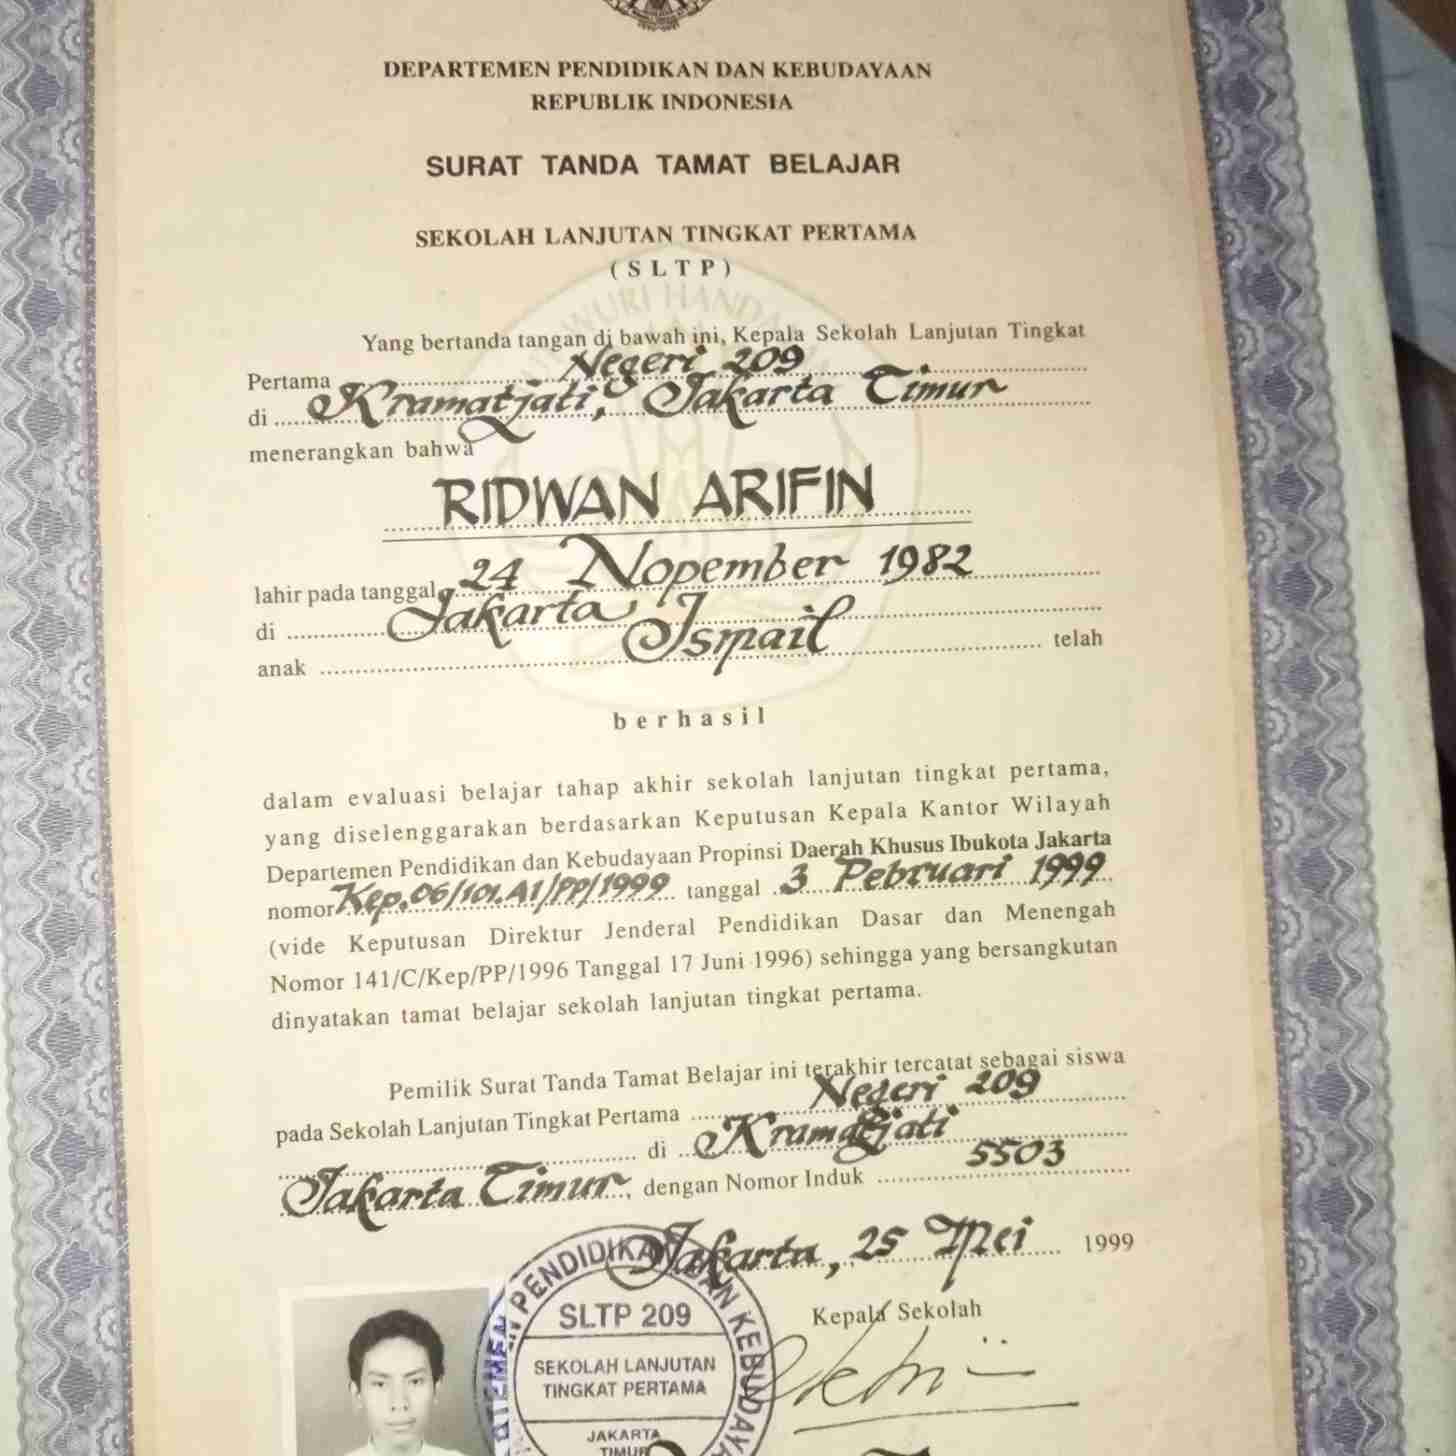 DEPARTEMEN PENDIDIKAN DAN KEBUDAYAAN
REPUBLIK INDONESIA
SURAT TANDA TAMAT BELAJAR
SEKOLAH LANJUTAN TINGKAT PERTAMA
(SLTP)
Yang bertanda tangan di bawah ini, Kepala Sekolah Lanjutan Tingkat
Pertama Negeri 209
di Kramatjati, Jakarta Timur
menerangkan bahwa
RIDWAN ARIFIN
lahir pada tanggal 24 Nopember 1982
di Jakarta
anak Ismail telah
berhasil
dalam evaluasi belajar tahap akhir sekolah lanjutan tingkat pertama,
yang diselenggarakan berdasarkan Keputusan Kepala Kantor Wilayah
Departemen Pendidikan dan Kebudayaan Propinsi Daerah Khusus Ibukota Jakarta
nomor Kep.06/101.A1/PP/1999 tanggal 3 Pebruari 1999
(vide Keputusan Direktur Jenderal Pendidikan Dasar dan Menengah
Nomor 141/C/Kep/PP/1996 Tanggal 17 Juni 1996) sehingga yang bersangkutan
dinyatakan tamat belajar sekolah lanjutan tingkat pertama.
Pemilik Surat Tanda Tamat Belajar ini terakhir tercatat sebagai siswa
pada Sekolah Lanjutan Tingkat Pertama Negeri 209
di Kramatjati
Jakarta Timur, dengan Nomor Induk 5503
Jakarta, 25 Mei 1999
Kepala Sekolah
PENDIDIKAN DAN KEBUDAYA
SLTP 209
SEKOLAH LANJUTAN
TINGKAT PERTAMA
JAKARTA
TIMUR